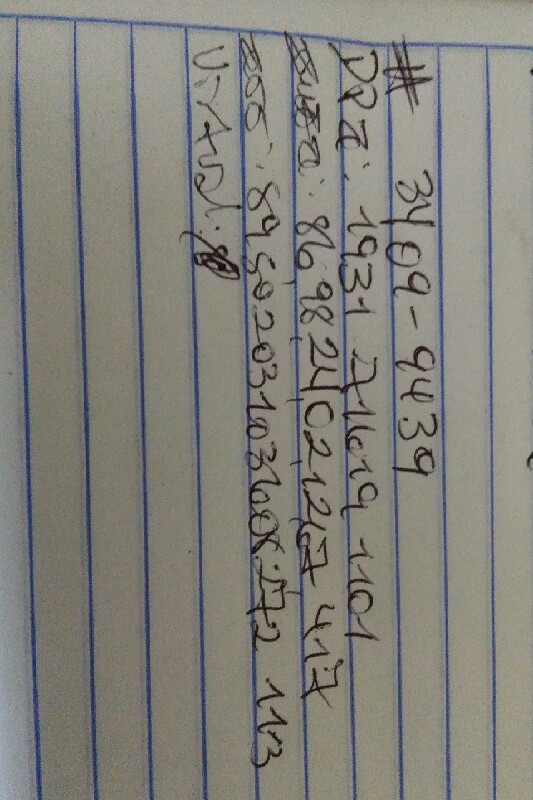 # 3409-9439
DPI: 1931 71619 1101
869824021247 417
8950203103600 272 113